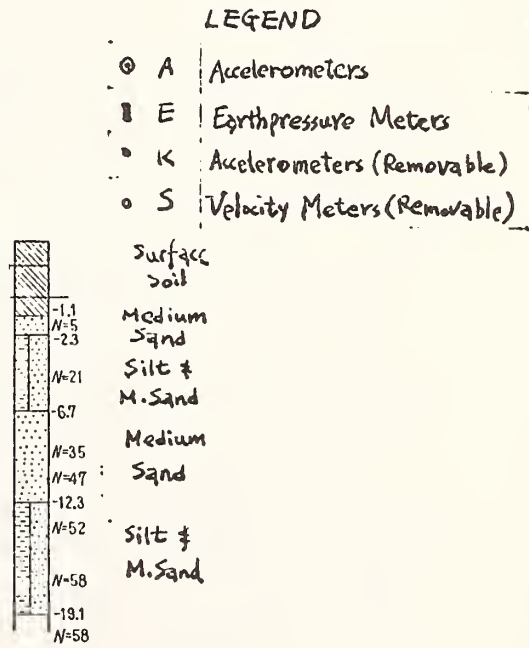 LEGEND
A Accelerometers
E Earthpressure Meters
K Accelerometers (Removable)
S Velocity Meters (Removable)
Surface
Soil
-1.1
N=5
-2.3
Medium
Sand
N=21
Silt &
M.Sand
-6.7
Medium
N=35
Sand
N=47
-12.3
N=52
Silt &
M.Sand
N=58
-19.1
N=58